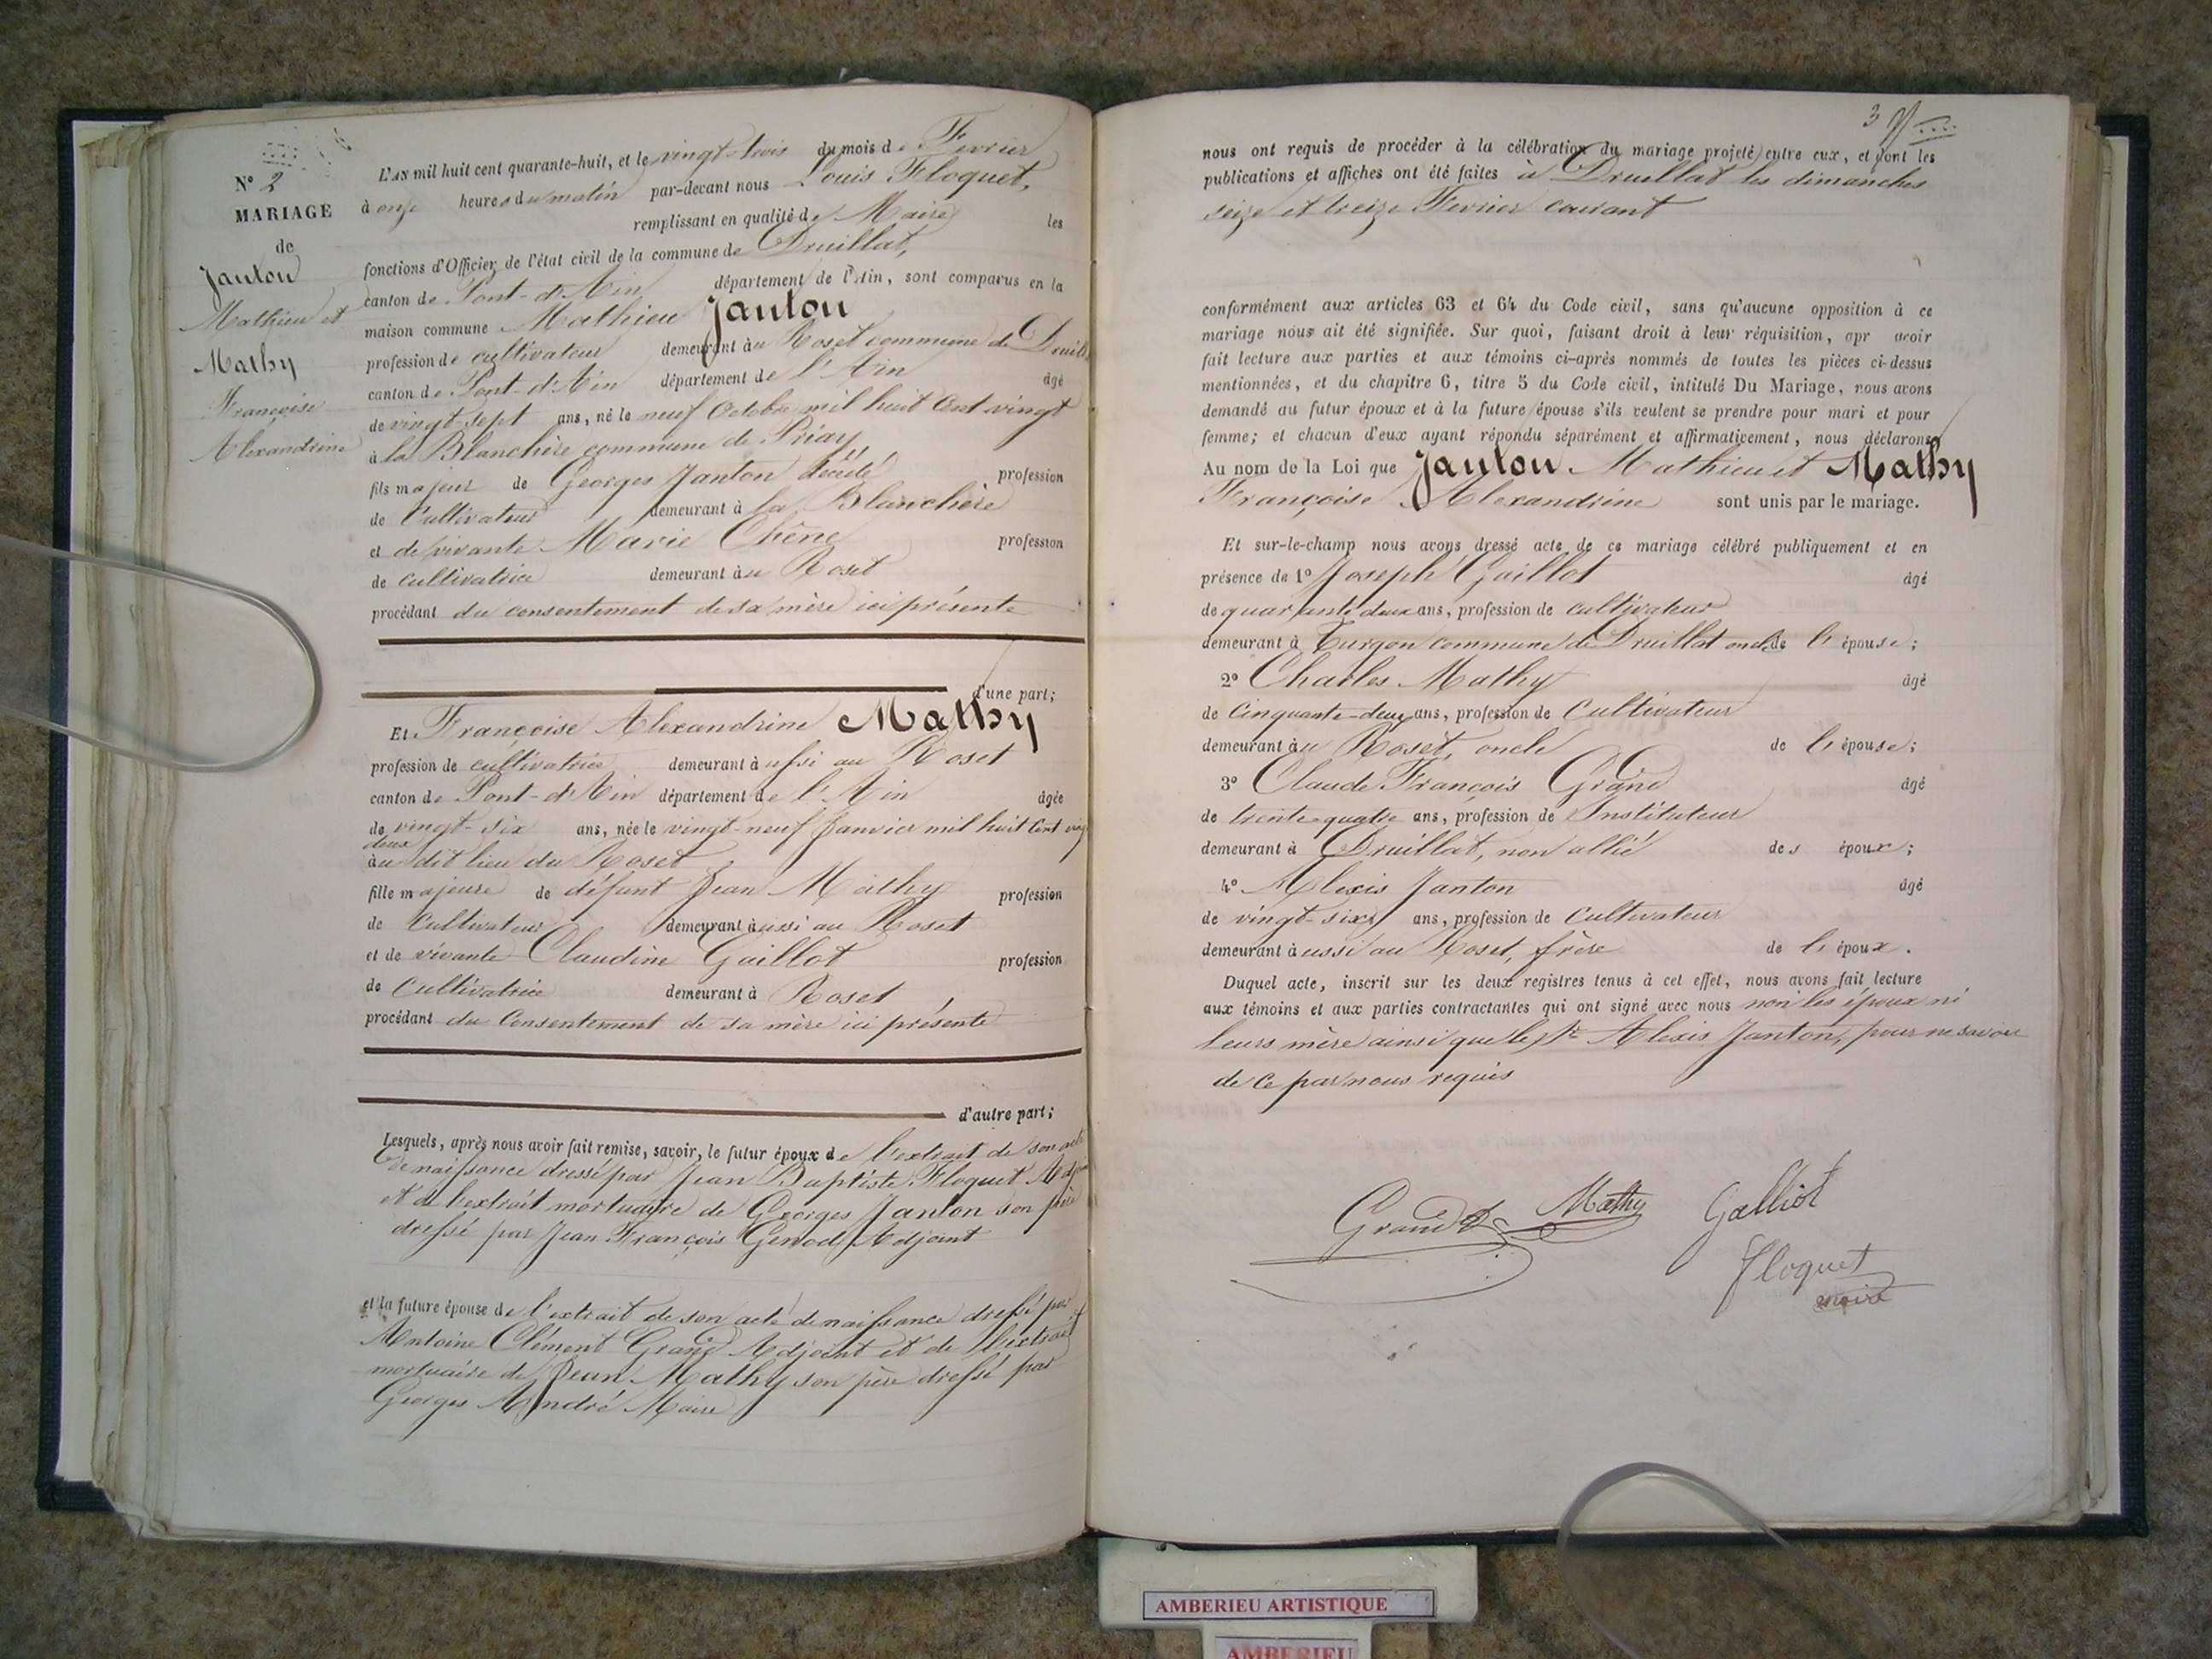 N° 2
MARIAGE
de
Janton
Mathieu et
Mathy
Françoise
Alexandrine
L'AN mil huit cent quarante-huit, et le vingt-trois du mois de Fevrier
à onze heures du matin par-devant nous Louis Floquet,
remplissant en qualité de Maire les
fonctions d'Officier de l'état civil de la commune de Druillat,
canton de Pont-d'Ain département de l'Ain, sont comparus en la
maison commune Mathieu Janton
profession de cultivateur demeurant au Roset commune de Druil
canton de Pont-d'Ain département de l'Ain âgé
de vingt-sept ans, né le neuf Octobre mil huit Cent vingt
à la Blanchère commune de Priay
fils majeur de Georges Janton décédé profession
de Cultivateur demeurant à la Blanchère
et de vivante Marie Chêne profession
de cultivatrice demeurant au Roset
procédant du consentement de sa mère ici présente
d'une part;
Et Françoise Alexandrine Mathy
profession de cultivatrice demeurant aussi au Roset
canton de Pont-d'Ain département de l'Ain âgée
de vingt-six ans, née le vingt-neuf Janvier mil huit Cent ving
deux
au dit lieu du Roset
fille majeure de défunt Jean Mathy profession
de Cultivateur demeurant aussi au Roset
et de vivante Claudine Gaillot profession
de Cultivatrice demeurant à Roset
procédant du Consentement de sa mère ici présente
d'autre part;
Lesquels, après nous avoir fait remise, savoir, le futur époux de l'extrait de son acte
de naissance dressé par Jean Baptiste Floquet Adjoint
et de l'extrait mortuaire de Georges Janton son père
dressé par Jean François Genod Adjoint
et la future épouse de l'extrait de son acte de naissance dressé par
Antoine Clément Grand Adjoint et de l'extrait
mortuaire de Jean Mathy son père dressé par
Georges André Maire
3
nous ont requis de procéder à la célébration du mariage projeté entre eux, et dont les
publications et affiches ont été faites à Druillat les dimanches
seize et treize Fevrier courant
conformément aux articles 63 et 64 du Code civil, sans qu'aucune opposition à ce
mariage nous ait été signifiée. Sur quoi, faisant droit à leur réquisition, apr avoir
fait lecture aux parties et aux témoins ci-après nommés de toutes les pièces ci-dessus
mentionnées, et du chapitre 6, titre 5 du Code civil, intitulé Du Mariage, nous avons
demandé au futur époux et à la future épouse s'ils veulent se prendre pour mari et pour
femme; et chacun d'eux ayant répondu séparément et affirmativement, nous déclarons
Au nom de la Loi que Janton Mathieu et Mathy
Françoise Alexandrine sont unis par le mariage.
Et sur-le-champ nous avons dressé acte de ce mariage célébré publiquement et en
présence de 1° Joseph Gaillot âgé
de quarante deux ans, profession de cultivateur
demeurant à Turgon commune de Druillat oncle de l'épouse;
2° Charles Mathy âgé
de Cinquante-deux ans, profession de Cultivateur
demeurant au Roset, oncle de l'épouse;
3° Claude François Grand âgé
de trente-quatre ans, profession de Instituteur
demeurant à Druillat, non allié des époux;
4° Alexis Janton âgé
de vingt-six ans, profession de Cultivateur
demeurant aussi au Roset, frère de l'époux.
Duquel acte, inscrit sur les deux registres tenus à cet effet, nous avons fait lecture
aux témoins et aux parties contractantes qui ont signé avec nous non les époux ni
leurs mère ainsi que le Sr Alexis Janton, pour ne savoir
de ce par nous requis
Grand Mathy Galliot
Floquet
maire
AMBERIEU ARTISTIQUE
AMBERIEU